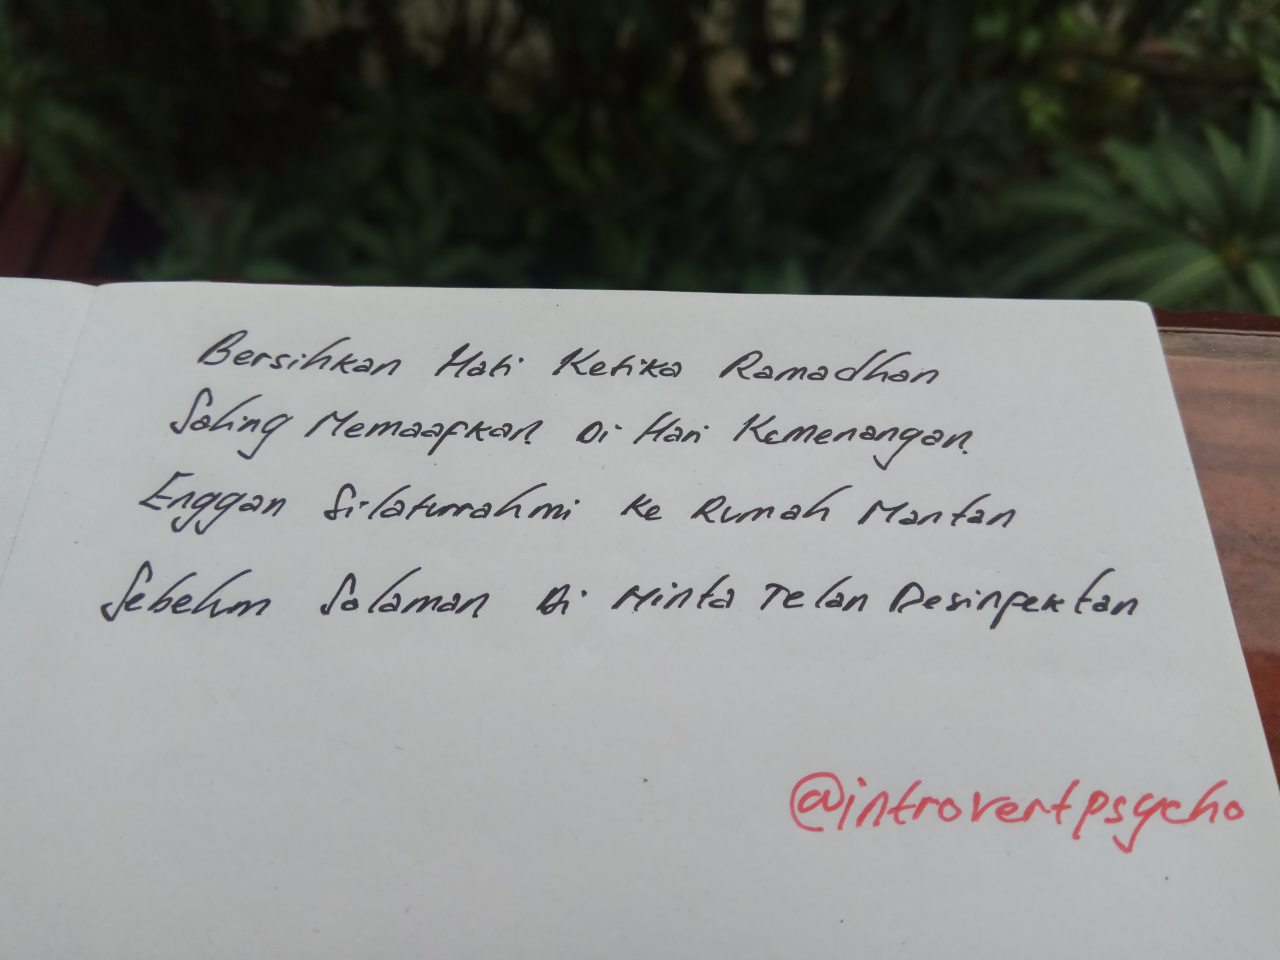 Bersihkan Hati Ketika Ramadhan
Saling Memaafkan Di Hari Kemenangan
Enggan Silaturrahmi Ke Rumah Mantan
Sebelum Salaman Di Minta Telan Desinfektan
@introvertpsycho